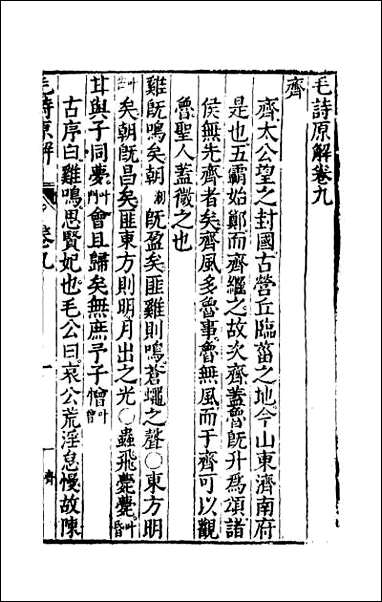 毛詩原解卷九
齊
齊太公望之封國古營丘臨菑之地今山東濟南府
是也五霸始鄭而齊繼之故次齊蓋魯旣升爲頌諸
侯無先齊者矣齊風多魯事魯無風而于齊可以觀
魯聖人蓋微之也
雞旣鳴矣朝潮旣盈矣匪雞則鳴蒼蠅之聲○東方明
矣朝旣昌矣匪東方則明月出之光○蟲飛薨薨叶昏
甘與子同夢叶門會且歸矣無庶予子憎叶
古序曰雞鳴思賢妃也毛公曰哀公荒淫怠慢故陳
毛詩原解 卷九 一 齊